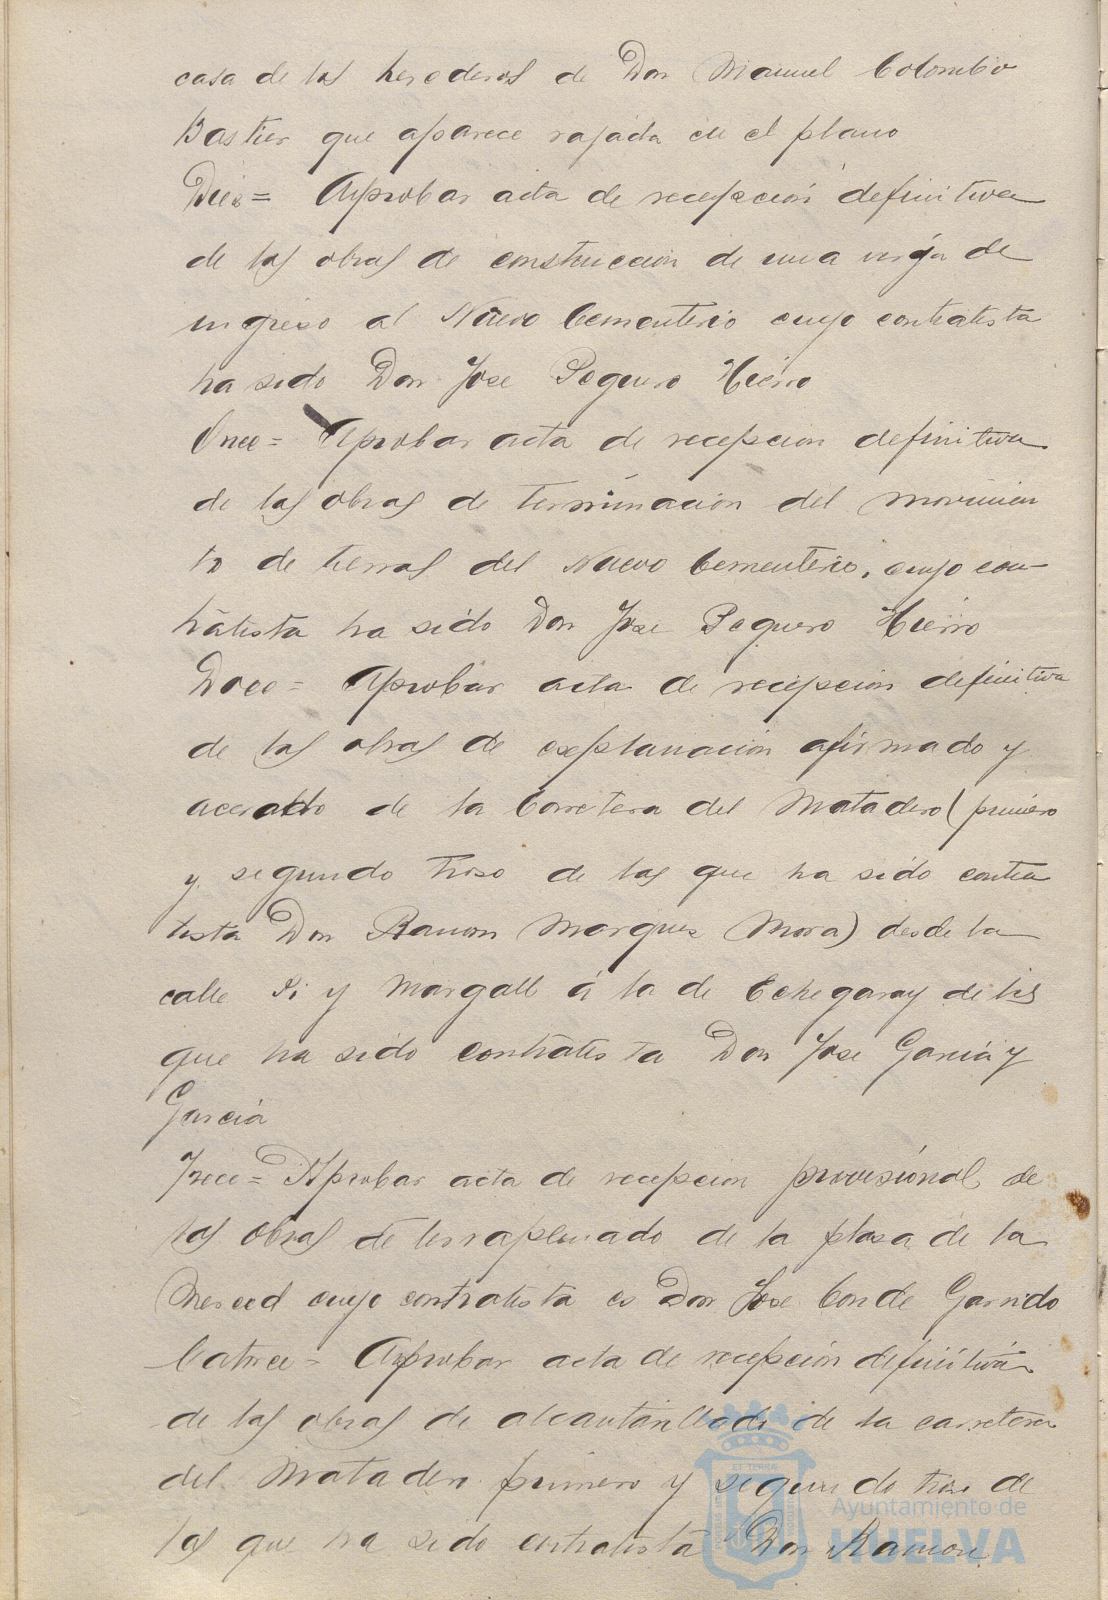 casa de las herederas de Don Manuel Colombo
Bastier que aparece rajada en el plano
Diés= Aprobar acta de recepción definitiva
de las obras de construccion de una verja de
ingreso al Nuevo Cementerio cuyo contratista
ha sido Don Jose Peguero Hierro
Once= Aprobar acta de recepcion definitiva
de las obras de terminacion del movimien
to de tierras del Nuevo Cementerio, cuyo con-
tratista ha sido Don Jose Peguero Hierro
Doce= Aprobar acta de recepcion definitiva
de las obras de explanación afirmado y
acerado de la Carretera del Matadero (primero
y segundo troso de las que ha sido contra
tista Don Ramon Marques Mora) desde la
calle Pi y Margall á la de Echegaray de las
que ha sido contratista Don Jose Garcia y
Garcia
Trece= Aprobar acta de recepcion provisional de
las obras de terraplenado de la plasa de la
Merced cuyo contratista es Don Jose Conde Garrido
Catorce= Aprobar acta de recepción definitiva
de las obras de alcantarillado de la carretera
del Matadero primero y segundo troso de
las que ha sido contratista Don Ramon
Ayuntamiento de
HUELVA